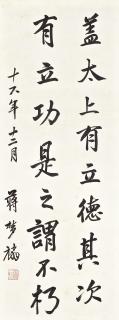 盖太上有立德其次
有立功是之謂不朽
十六年十二月
蔣夢麟